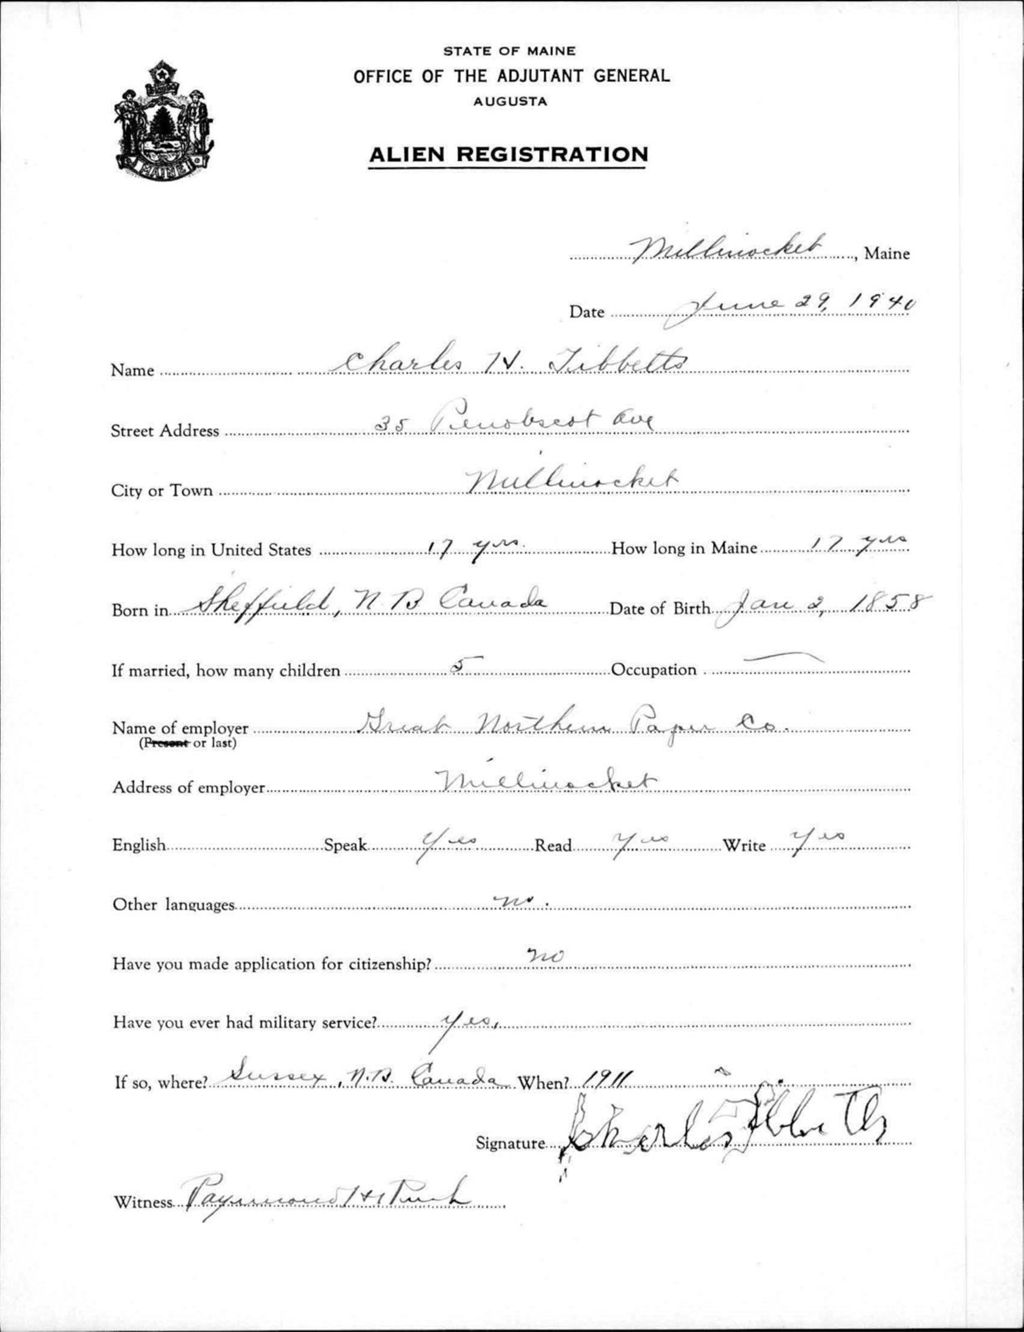 STATE OF MAINE
OFFICE OF THE ADJUTANT GENERAL
AUGUSTA
ALIEN REGISTRATION
MAINE
Millinocket, Maine
Date June 29, 1940
Name Charles H. Tibbetts
Street Address 35 Penobscot Ave
City or Town Millinocket
How long in United States 17 yrs. How long in Maine 17 yrs
Born in Sheffield, N B Canada Date of Birth Jan 2, 1858
If married, how many children 5 Occupation —
Name of employer Great Northern Paper Co.
(Present or last)
Address of employer Millinocket
English Speak Yes Read Yes Write Yes
Other languages no.
Have you made application for citizenship? no
Have you ever had military service? yes,
If so, where? Sussex, N.B. Canada When? 1911
Signature Charles Tibbetts
Witness Raymond H